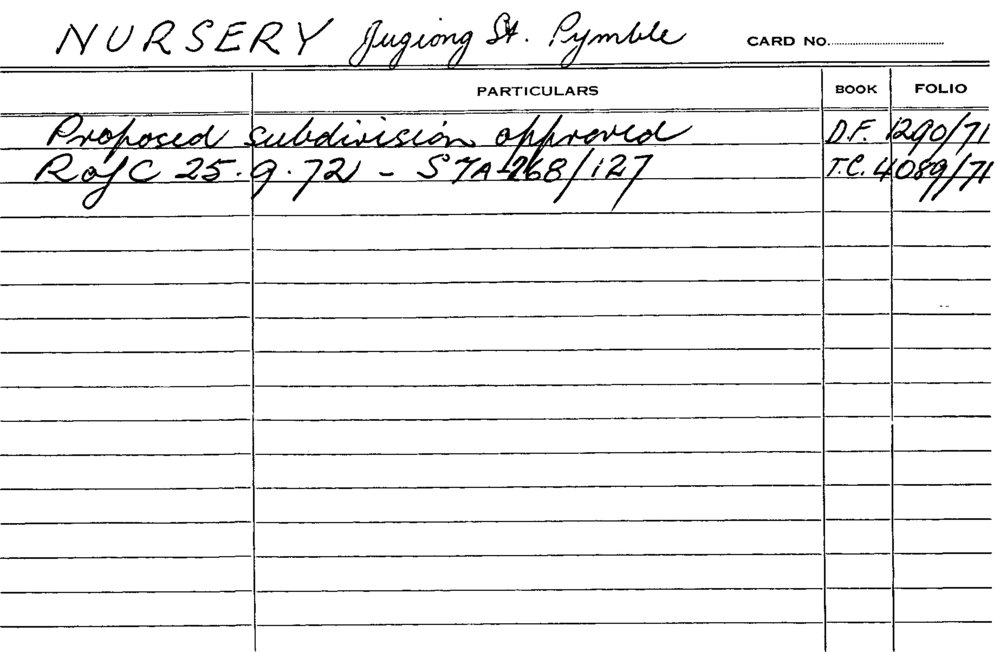 NURSERY Jugiong St. Pymble CARD NO.
PARTICULARS BOOK FOLIO
Proposed subdivision approved D.F. 1290/71
R of C 25.9.72 - STA 268/127 T.C. 4089/71